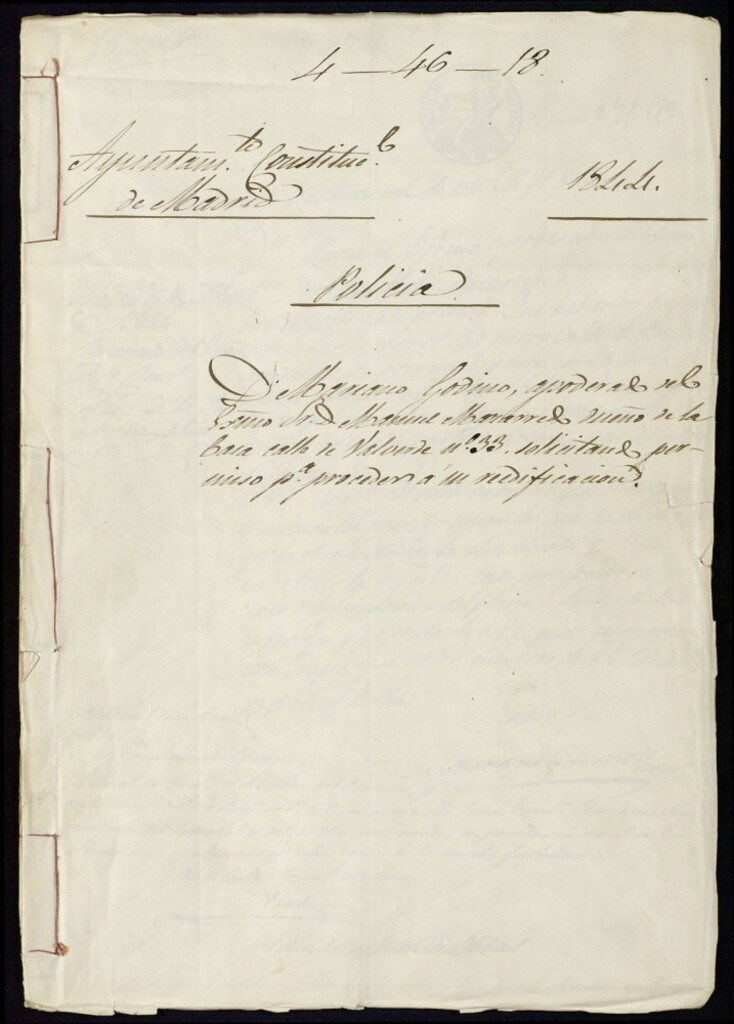 4-46-18.
Ayuntam.to Constituc.l
de Madrid
1844.
Policia
Dn Mariano Godino, apoderado del
Exmo Sr. D. Manuel Mazarredo dueño de la
Casa calle de Valverde n.o 33. solicitando per-
miso p.a proceder á su reedificacion.